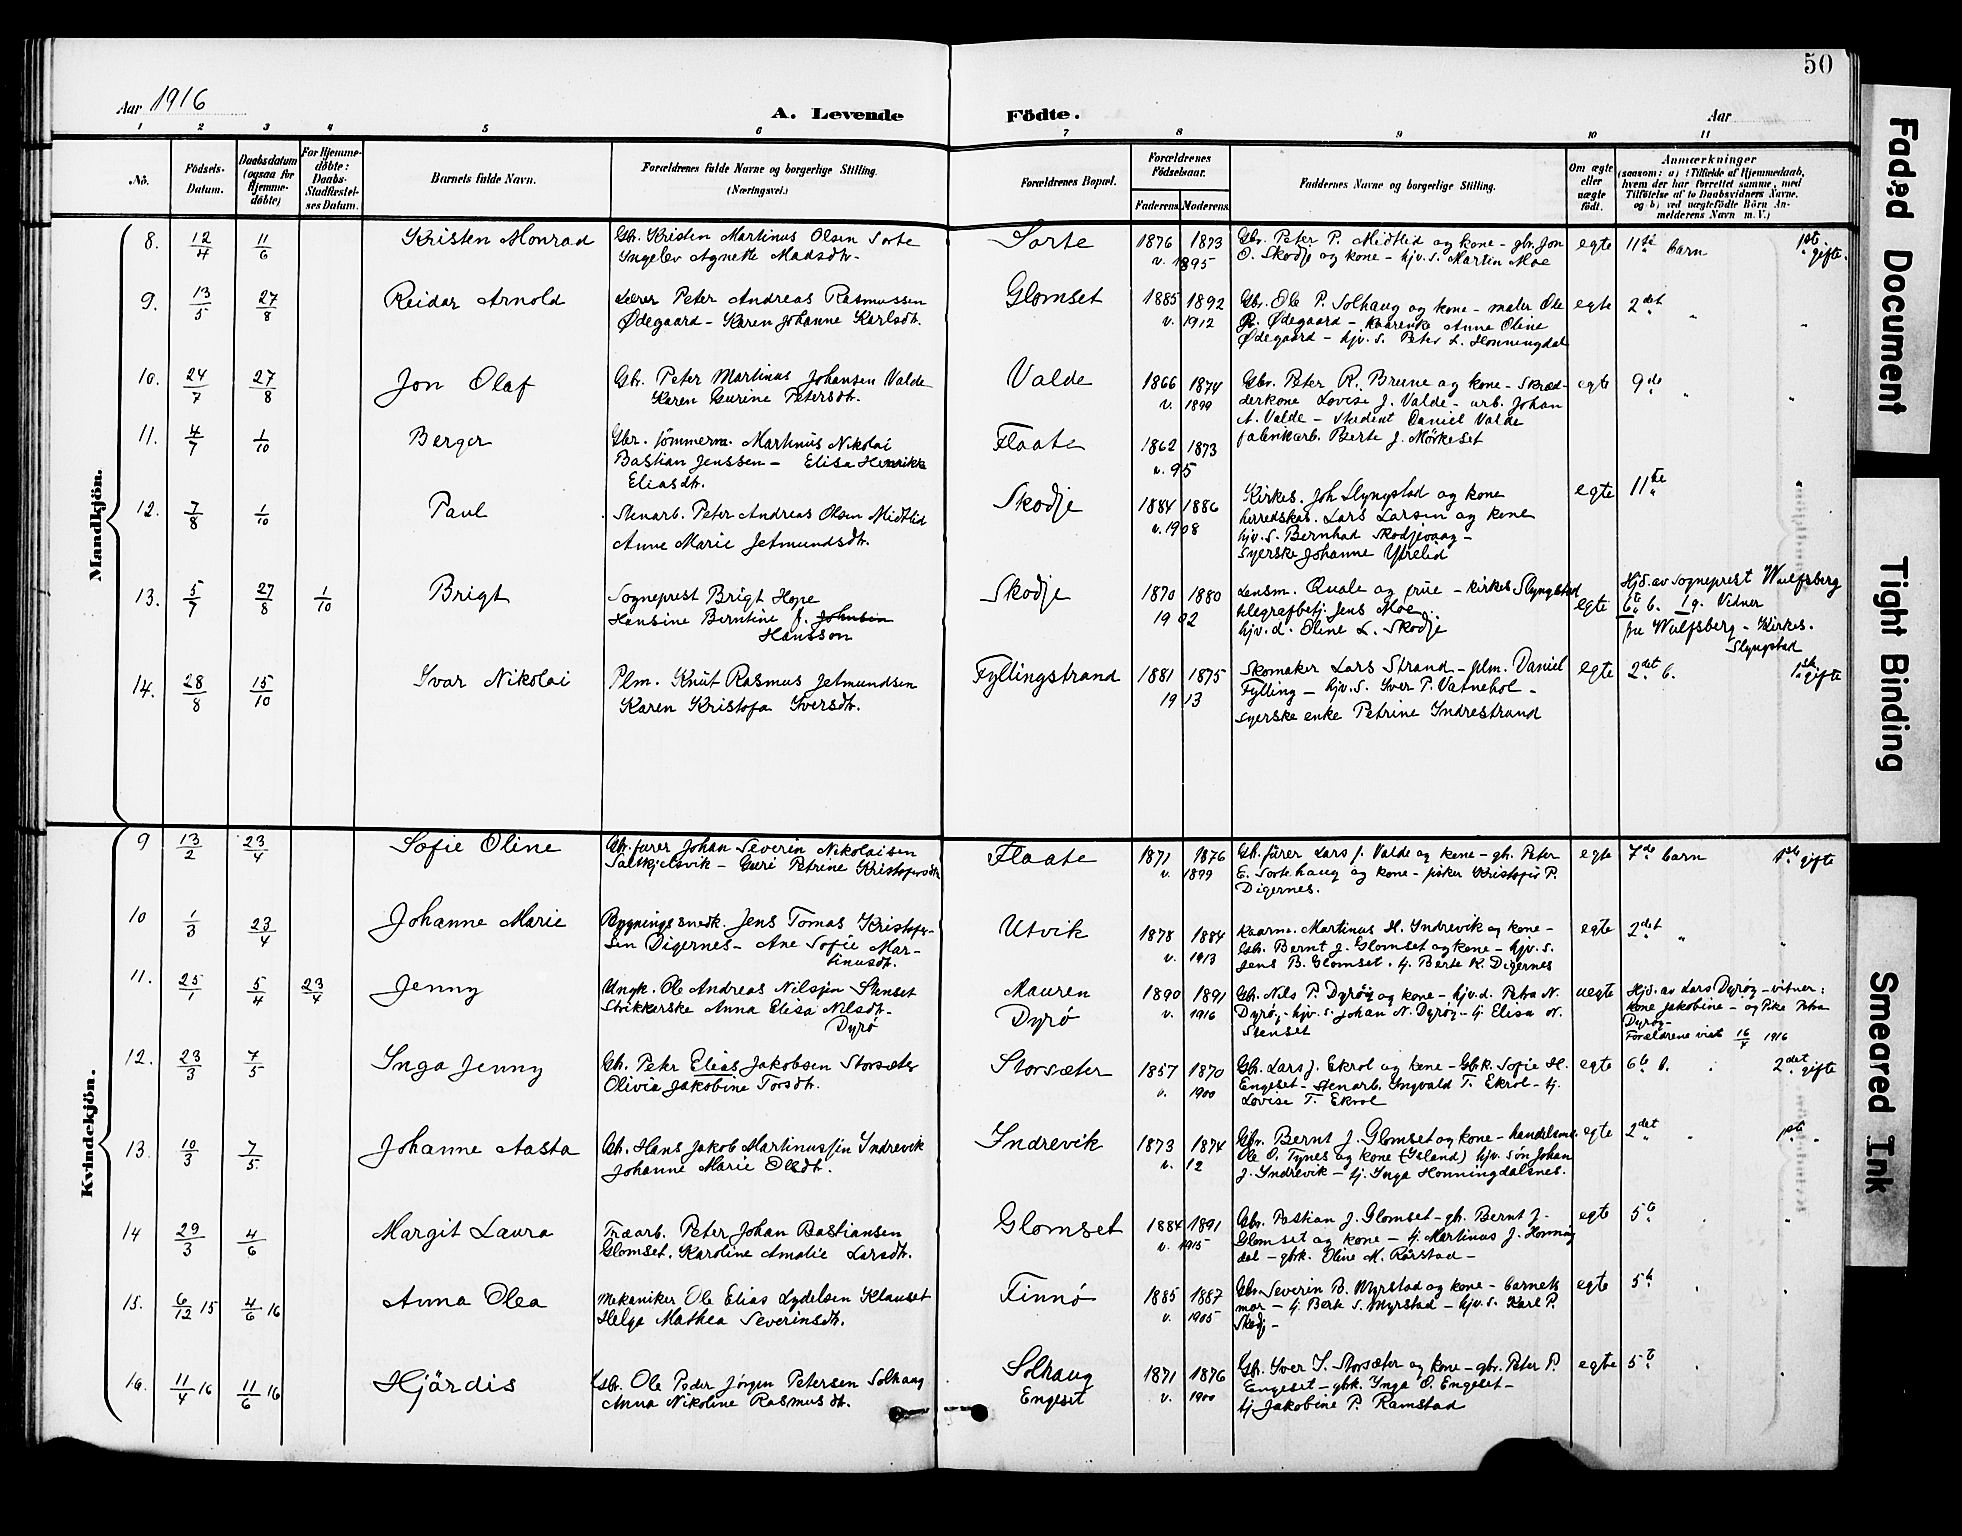 50
Aar 1916
A. Levende Födte.
Aar
1 2 3 4 5 6 7 8 9 10 11
No.
Födsels-Datum.
Daabsdatum (ogsaa for Hjemme-döbte)
For Hjemme-döbte: Daabs-Stadfæstel-ses Datum.
Barnets fulde Navn.
Forældrenes fulde Navne og borgerlige Stilling.
(Næringsvei.)
Forældrenes Bopæl.
Forældrenes Födselsaar.
Faderens. Moderens.
Faddernes Navne og borgerlige Stilling.
Om ægte eller uægte födt.
Anmærkninger
(saasom: a) i Tilfælde af Hjemmedaab,
hvem der har forrettet samme, med
Tilföielse af to Daabsvidners Navne.
og b) ved uægtefödte Börn An-
melderens Navn m. V.)
Mandkjön.
8. 12/4 11/6 Kristen Monrad
Gbr. Kristen Martinus Olsen Sorte
Ingelev Agnette Madsdtr.
Sorte 1876 1873
v. 1895
Gbr. Peter P. Midtlid og kone - gbr. Jon
O. Skodje og kone - hjv. s. Martin Moe
egte 11te barn 1ste gifte.
9. 13/5 27/8 Reidar Arnold
Lærer Peter Andreas Rasmussen
Ødegaard - Karen Johanne Karlsdtr.
Glomset 1885 1892
v. 1912
Gbr. Ole P. Solhaug og kone - maler Ole
R. Ødegaard - kaarenke Anne Oline
Ødegaard - hjv. s. Peter L. Honningdal
egte 2det "
10. 24/7 27/8 Jon Olaf
Gbr. Peter Martinus Johansen Valde
Karen Gurine Petersdtr.
Valde 1866 1874
v. 1899
Gbr. Peter R. Brune og kone - Skræd-
derkone Lovise J. Valde - arb. Johan
A. Valde - student Daniel Valde
fabrikarb. Berte J. Mørkeset
egte 9de "
11. 4/7 1/10 Berger
Gbr. tömmerm. Martinus Nikolai
Bastian Jenssen - Elisa Henrikke
Eliasdtr.
Flaate 1862 1873
v. 95
12. 7/8 1/10 Paul
Stenarb. Peter Andreas Olsen Midtlid
Anne Marie Jetmundsdtr.
Skodje 1884 1886
v. 1908
Kirkes. Joh Slyngstad og kone
herredskas. Lars Larsen og kone
hjv. s. Bernhad Skodjevaag -
syerske Johanne Ytrelid
egte 11te "
13. 5/7 27/8 1/10 Brigt
Sogneprest Brigt Hope
Hensine Berntine f. Johnsen
Hansson
Skodje 1870 1880
1902
Lensm. Quale og frue - kirkes Slyngstad
telegrafbetj. Jens Moe.
hjv. d. Oline L. Skodje
egte
Hjd. av sogneprest Wulfsberg
6te b. 1 g. Vidner
fru Wulfsberg - Kirkes.
Slyngstad
14. 28/8 15/10 Ivar Nikolai
Plm. Knut Rasmus Jetmundsen
Karen Kristofa Iversdtr.
Fyllingstrand 1881 1875
1913
Skomaker Lars Strand - plm. Daniel
Fylling - hjv. s. Iver P. Vatnehol -
syerske enke Petrine Indrestrand
egte 2det b. 1ste gifte
Kvindekjön.
9 13/2 23/4 Sofie Oline
Gbr. fører Johan Severin Nikolaisen
Saltkjelsvik - Guri Petrine Kristofersdtr
Flaate 1871 1876
v. 1899
Gbr. fører Lars J. Valde og kone - gbr. Peter
E. Sortehaug og kone - fisker Kristofer P.
Digernes.
egte 7de barn 1ste gifte
10 1/3 23/4 Johanne Marie
Bygningssnedk. Jens Tomas Kristofer-
sen Digernes - Ane Sofie Mar-
tinusdtr.
Utvik 1878 1884
v. 1913
Kaarm. Martinus H. Indrevik og kone -
Gbr. Bernt J. Glomset og kone - hjv. s.
Jens B. Glomset. tj. Berte K. Digernes
egte 2det "
11. 25/1 5/4 23/4 Jenny
Ungk. Ole Andreas Nilsen Stenset
Strikkerske Anna Elisa Nilsdtr.
Dyrø
Mauren
Dyrö
1890 1891
v. 1916
Gbr. Nils P. Dyröy og kone - hjv. d. Petra N.
Dyröy - hjv. s. Johan N. Dyröy - tj. Elisa N.
Stenset
uegte
Hjd. av Lars Dyröy - vitner:
Kone Jakobine - og Pike Petra
Dyröy -
Forældrene viet 16/4 1916
12. 23/3 7/5 Inga Jenny
Gbr. Peter Elias Jakobsen Storsæter
Olivia Jakobine Torsdtr.
Storsæter 1857 1870
v. 1900
Gbr. Lars J. Ekrol og kone - Gbk. Sofie H.
Engeset - stenarb. Ingvald T. Ekrol - tj.
Lovise T. Ekrol
egte 6te b. 2det gifte
13. 10/3 7/5 Johanne Aasta
Gbr. Hans Jakob Martinussen Indrevik
Johanne Marie Oledtr.
Indrevik 1873 1874
v. 12
Gbr. Bernt J. Glomset og kone - handelsm.
Ole O. Tynes og kone (Island) hjv. sön Johan
J. Indrevik - tj. Inga Honningdalsnes.
egte 2det " 1ste "
14 29/3 4/6 Margit Laura
Træarb. Peter Johan Bastiansen
Glomset. Karoline Amalie Larsdtr.
Glomset 1884 1891
v. 1915
Gbr. Bastian J. Glomset - gbr. Bernt J.
Glomset og kone - tj. Martinus J. Honning
dal - gbk. Oline M. Rörstad -
egte 5te
15. 6/12 15 4/6 16 Anna Olea
Mekaniker Ole Elias Lydelsen Klauset
Helga Mathea Severinsdtr.
Finnö 1885 1887
v. 1905
Gbr. Severin B. Myrstad og kone - barnets
mor - tj. Berte S. Myrstad - hjv. s. Karl P.
Skodj -
egte 5te
16. 11/4 16 11/6 16 Hjördis
Gbr. Ole Peder Jörgen Petersen Solhaug
Anna Nikoline Rasmusdtr.
Solhaug
Engeset
1871 1876
v. 1900
Gbr. Iver I. Storsæter og kone - gbr. Peter P.
Engeset - gbk. Inga O. Engeset -
tj Jakobine P. Ramstad
egte 5te
Faded Document
Tight Binding
Smeared Ink